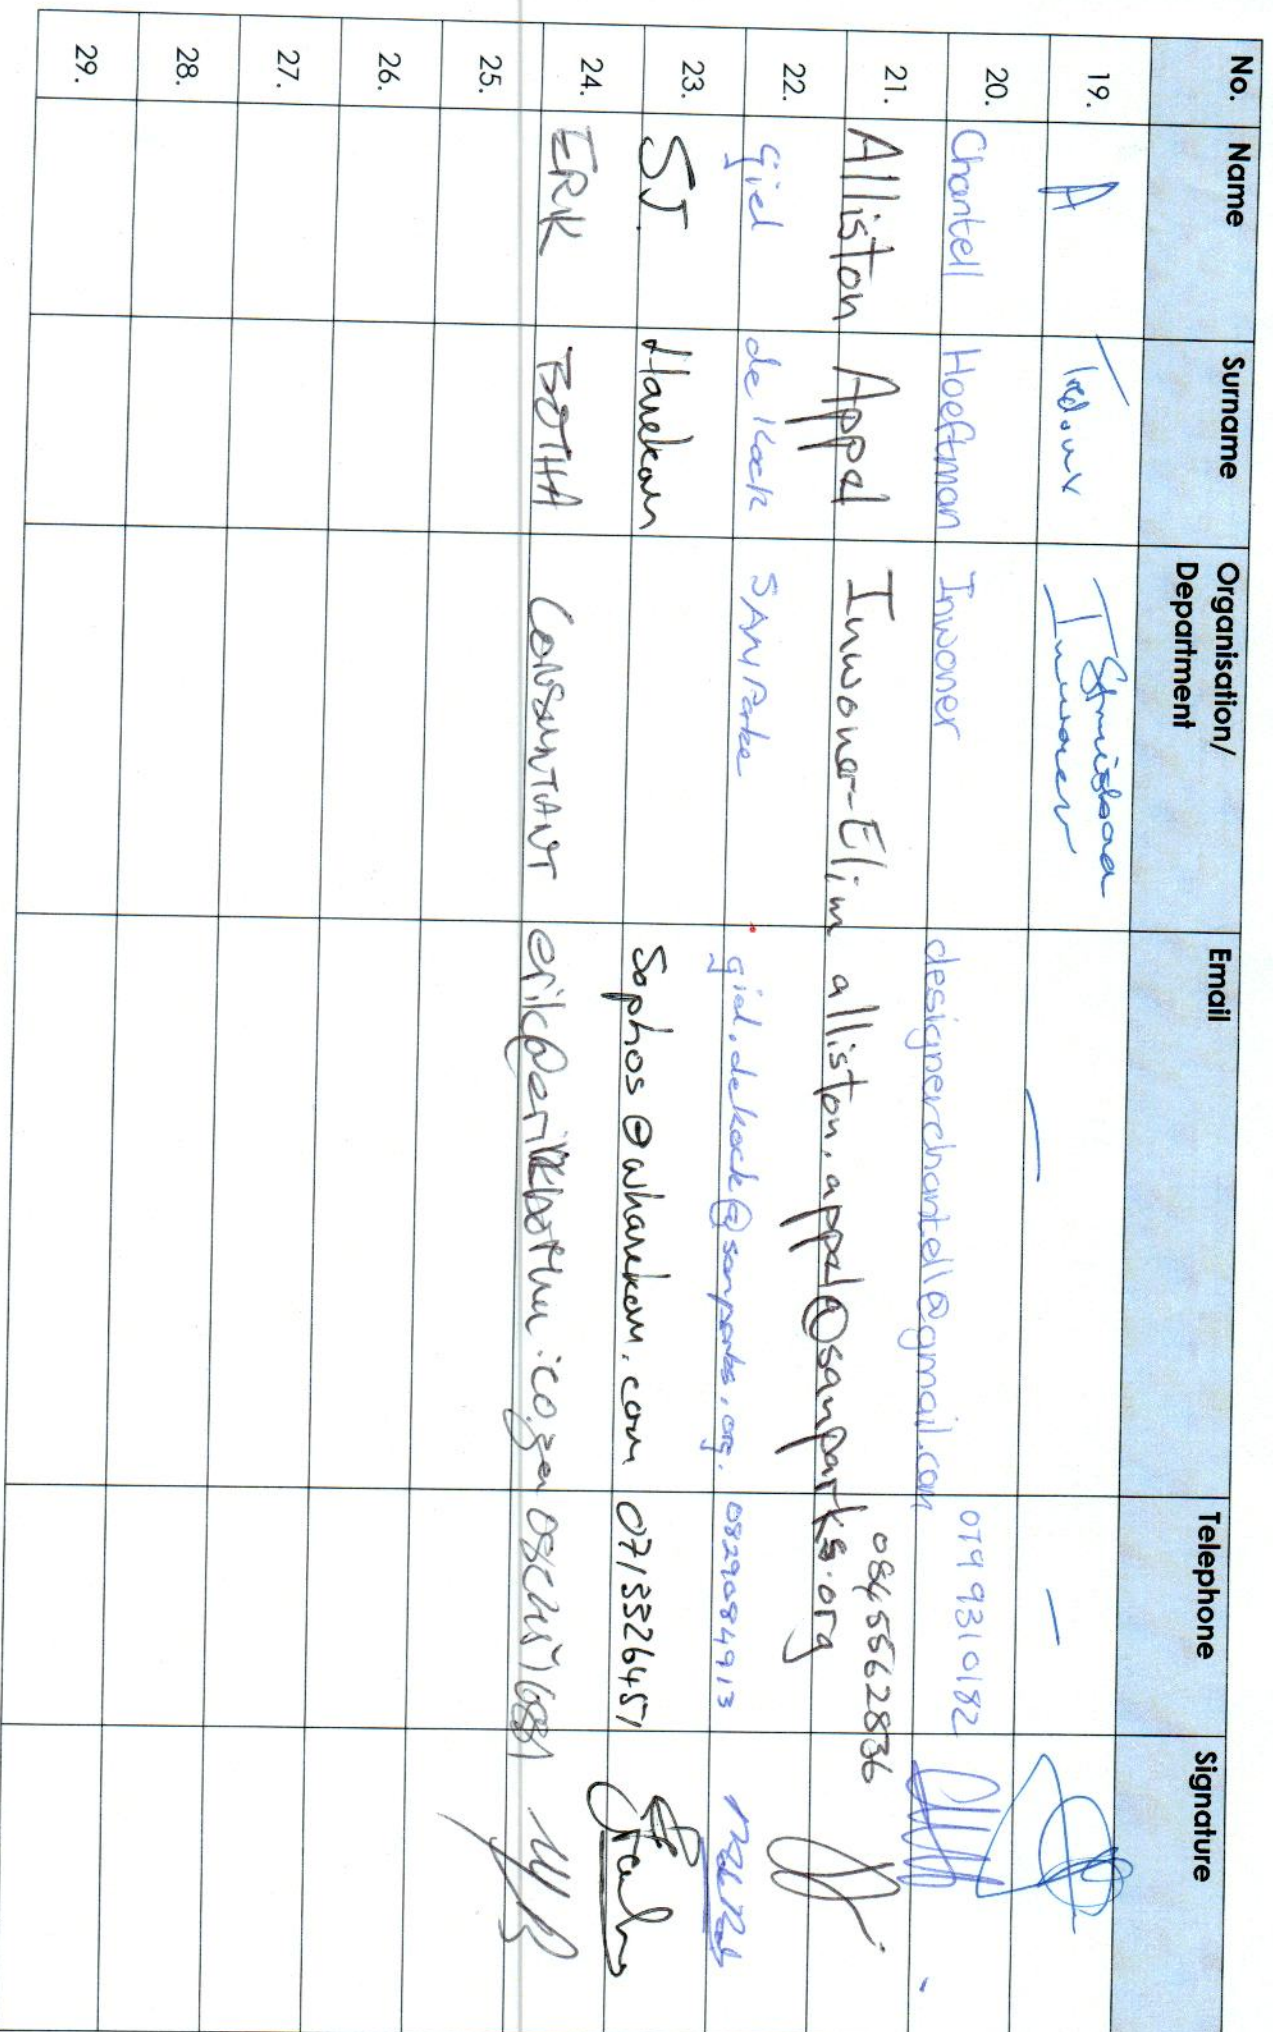 No. Name Surname Organisation/ Department Email Telephone Signature
19. A Struisbaai Inwoner — —
20. Chantell Hoeftman Inwoner designerchantell@gmail.com 0799310182
21. Alliston Appel Inwoner-Elim alliston.appel@sanparks.org 0845562836
22. giel de Kock SANParke giel.dekock@sanparks.org. 0829084913
23. SJ. Hanekom Sophos@whanekom.com 0713326457
24. ERIK BOTHA CONSULTANT erik@erikbotha.co.za
25.
26.
27.
28.
29.